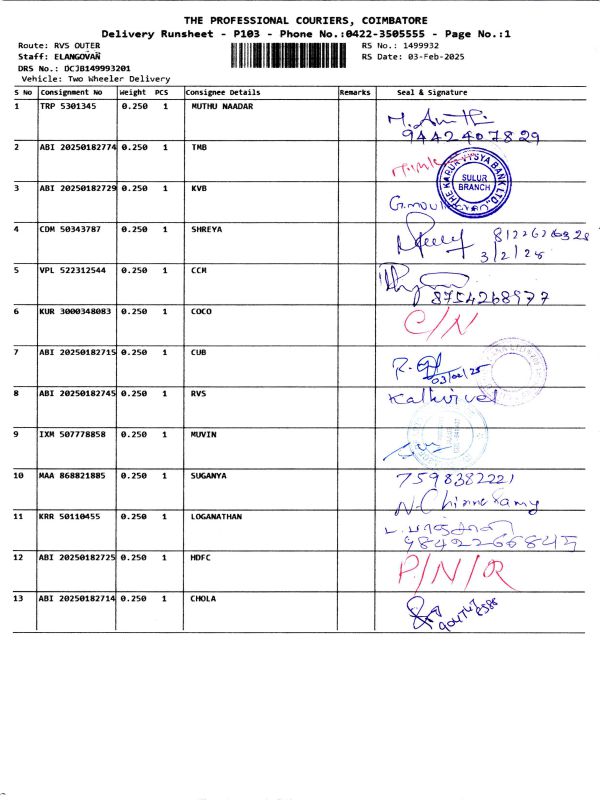 THE PROFESSIONAL COURIERS, COIMBATORE
Delivery Runsheet - P103 - Phone No.:0422-3505555 - Page No.:1
Route: RVS OUTER RS No.: 1499932
Staff: ELANGOVAN RS Date: 03-Feb-2025
DRS No.: DCJB149993201
Vehicle: Two Wheeler Delivery
S No Consignment No Weight PCS Consignee Details Remarks Seal & Signature
1 TRP 5301345 0.250 1 MUTHU NAADAR
9442407829
2 ABI 20250182774 0.250 1 TMB
THE KARUR VYSYA BANK LTD.,
SULUR
BRANCH
3 ABI 20250182729 0.250 1 KVB
4 CDM 50343787 0.250 1 SHREYA
3/2/25
5 VPL 522312544 0.250 1 CCM
8754268977
6 KUR 3000348083 0.250 1 COCO C/N
7 ABI 20250182715 0.250 1 CUB
03/02/25
8 ABI 20250182745 0.250 1 RVS Kathirvel
9 IXM 507778858 0.250 1 MUVIN
10 MAA 868821885 0.250 1 SUGANYA 7598382221
N. Chinnasamy
11 KRR 50110455 0.250 1 LOGANATHAN
9842266845
12 ABI 20250182725 0.250 1 HDFC P/N/R
13 ABI 20250182714 0.250 1 CHOLA